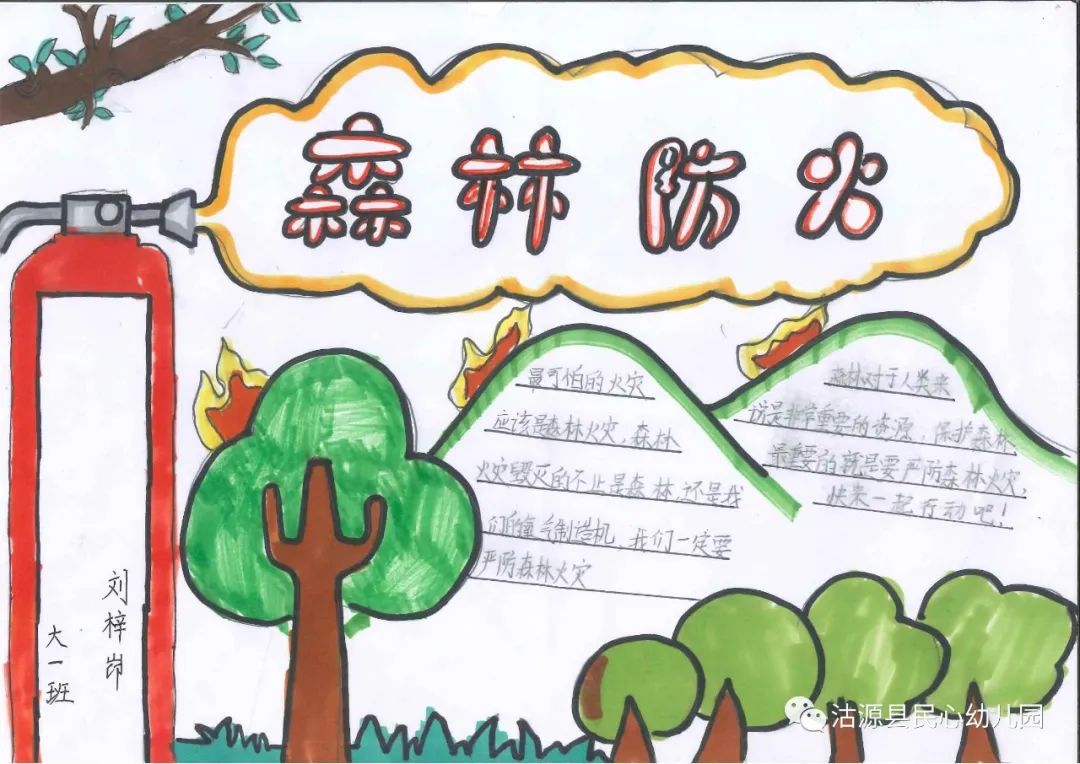 森林防火
最可怕的火灾
应该是森林火灾，森林
火灾毁灭的不止是森林，还是我
们的氧气制造机，我们一定要
严防森林火灾
森林对于人类来
说是非常重要的资源，保护森林
最重要的就是要严防森林火灾，
快来一起行动吧！
刘梓
大一班
沽源县民心幼儿园